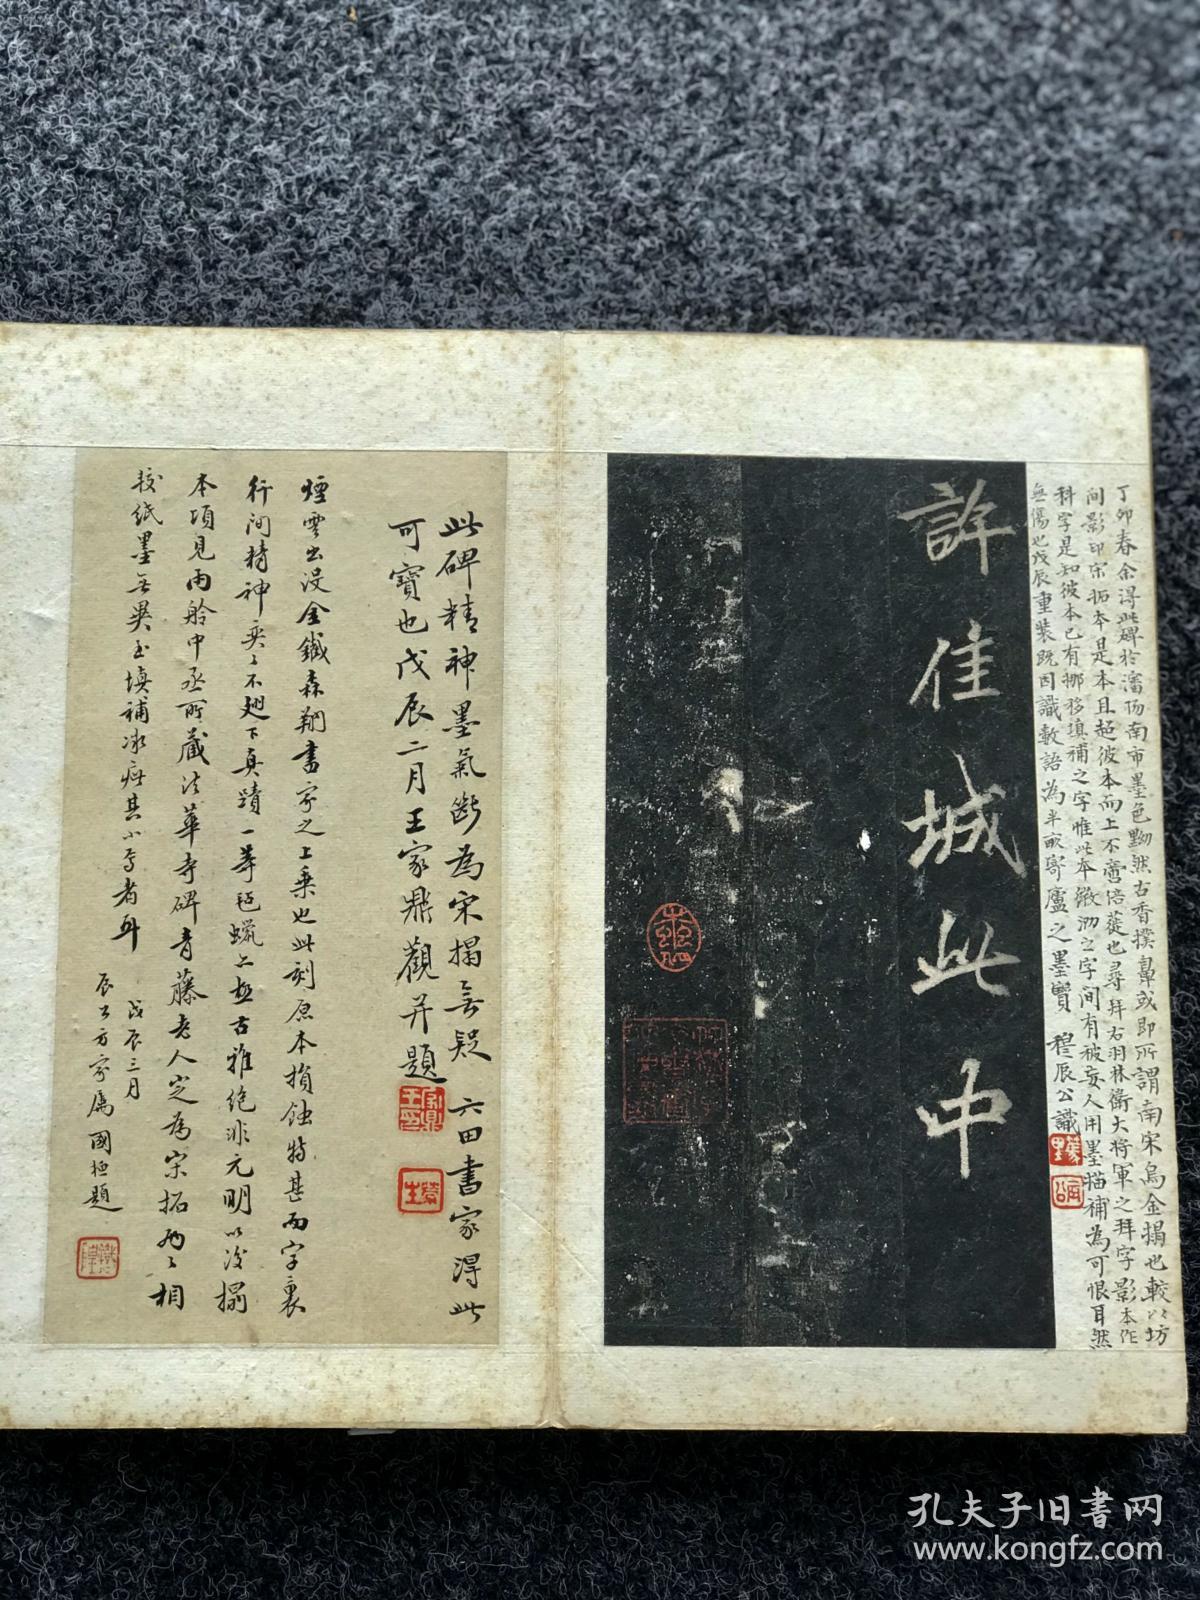 丁卯春余淂此碑於瀋陽南市墨色黝然古香撲鼻或即所謂南宋烏金搨也較以坊
间影印宋拓本是本且超彼本而上不啻倍蓰也尋拜右羽林衛大將軍之拜字影本作
科字是知彼本已有挪移填補之字惟此本微泐之字间有被妄人用墨描補為可恨耳然
無傷也戊辰重裝既因識數語為半畝寄廬之墨寶 穆辰公識
許佳城此中
此碑精神墨氣斷為宋搨無疑 六田書家淂此
可寶也戊辰二月王家鼎觀并題
煙雲出没金鐵森翔書家之上乘也此刻原本損蝕特甚而字裏
行间精神奕奕不翅下真蹟一等氊蠟亦極古雅絶非元明以後搨
本頃見雨舲中丞所藏法華寺碑青藤老人定為宋拓兩兩相
較紙墨無異至填補冰疵其小焉者耳
戊辰三月
辰公方家属國桓題
孔夫子旧书网
www.kongfz.com